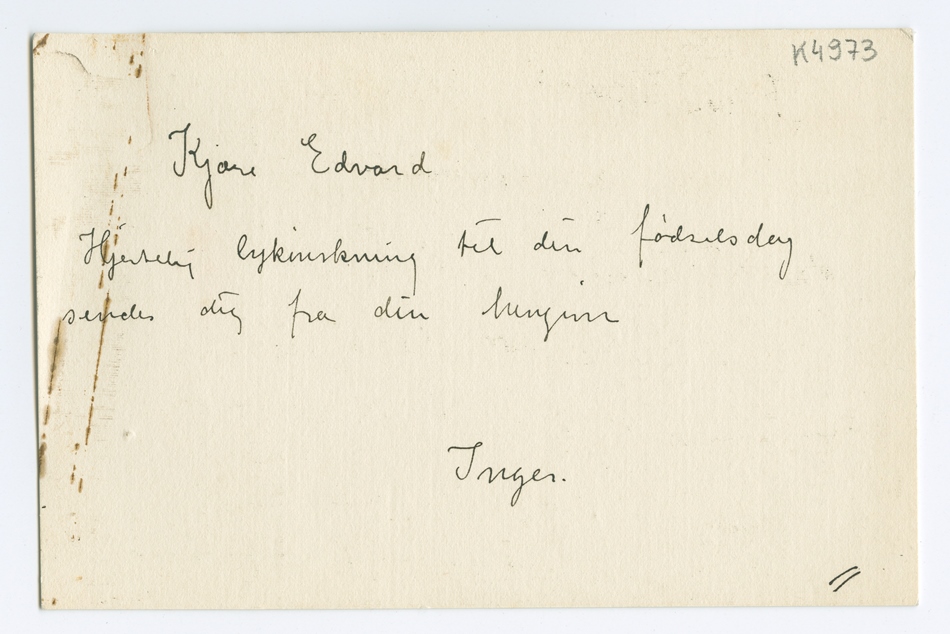 K4973
Kjære Edvard
Hjertelig lykønskning til din fødselsdag
sendes dig fra din hengivne
Inger.